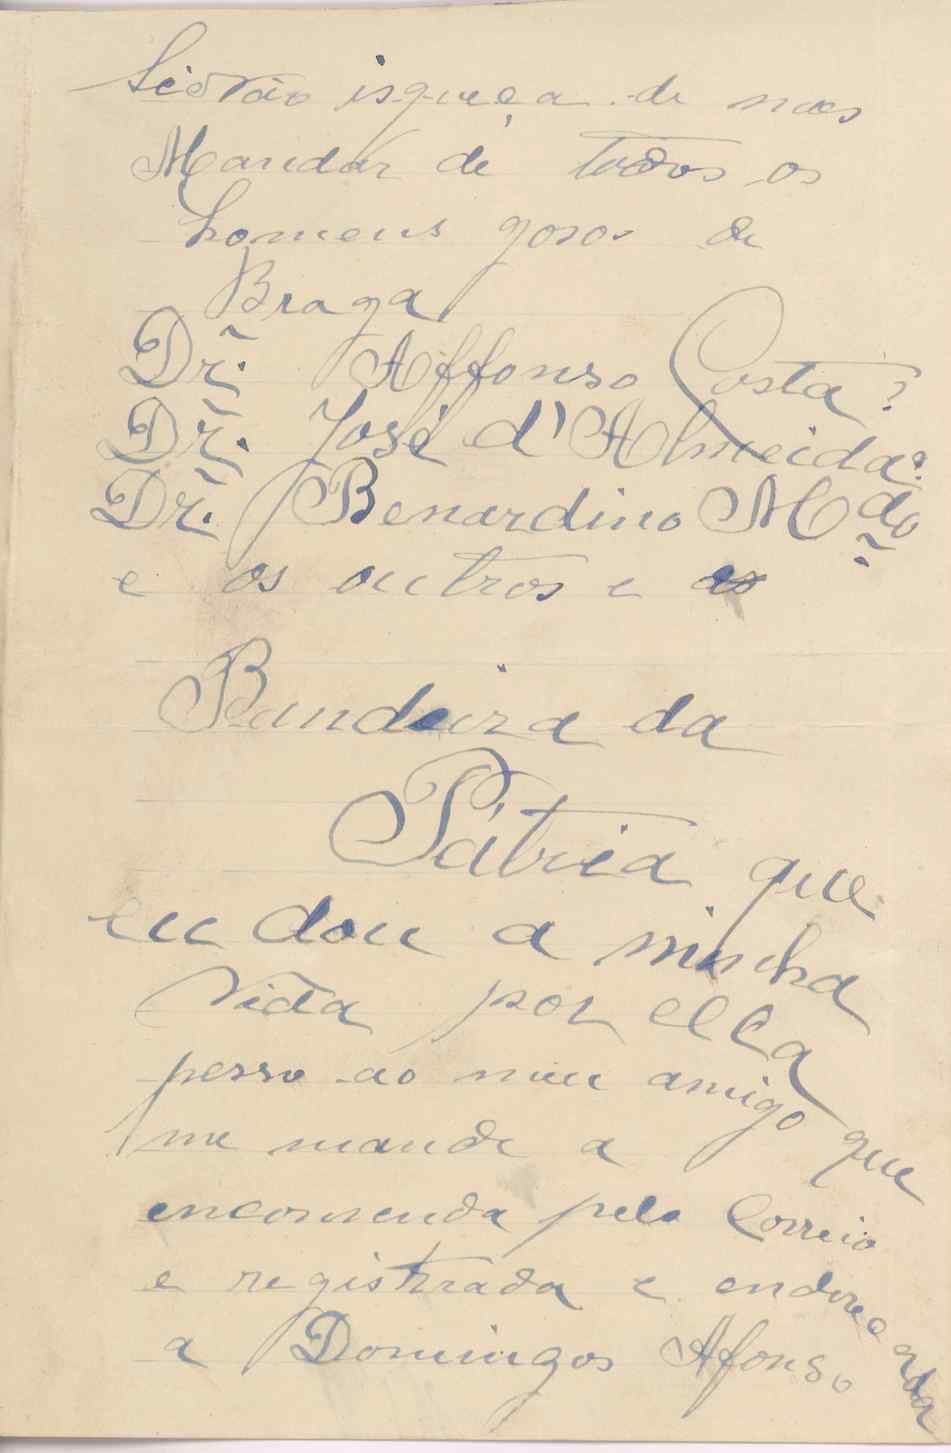 não isqueça de nos
Mandar de todos os
homens de
Braga
Dr. Affonso Costa?
Dr. José d'Almeida?
Dr. Benardino Mdo
e os outros e as
Bandeira da
Pátria que
eu dou a minha
vida por ella
pesso ao meu amigo que
me mande a
encomenda pelo Correio
e registrada e endereçada
a Domingos Afonso